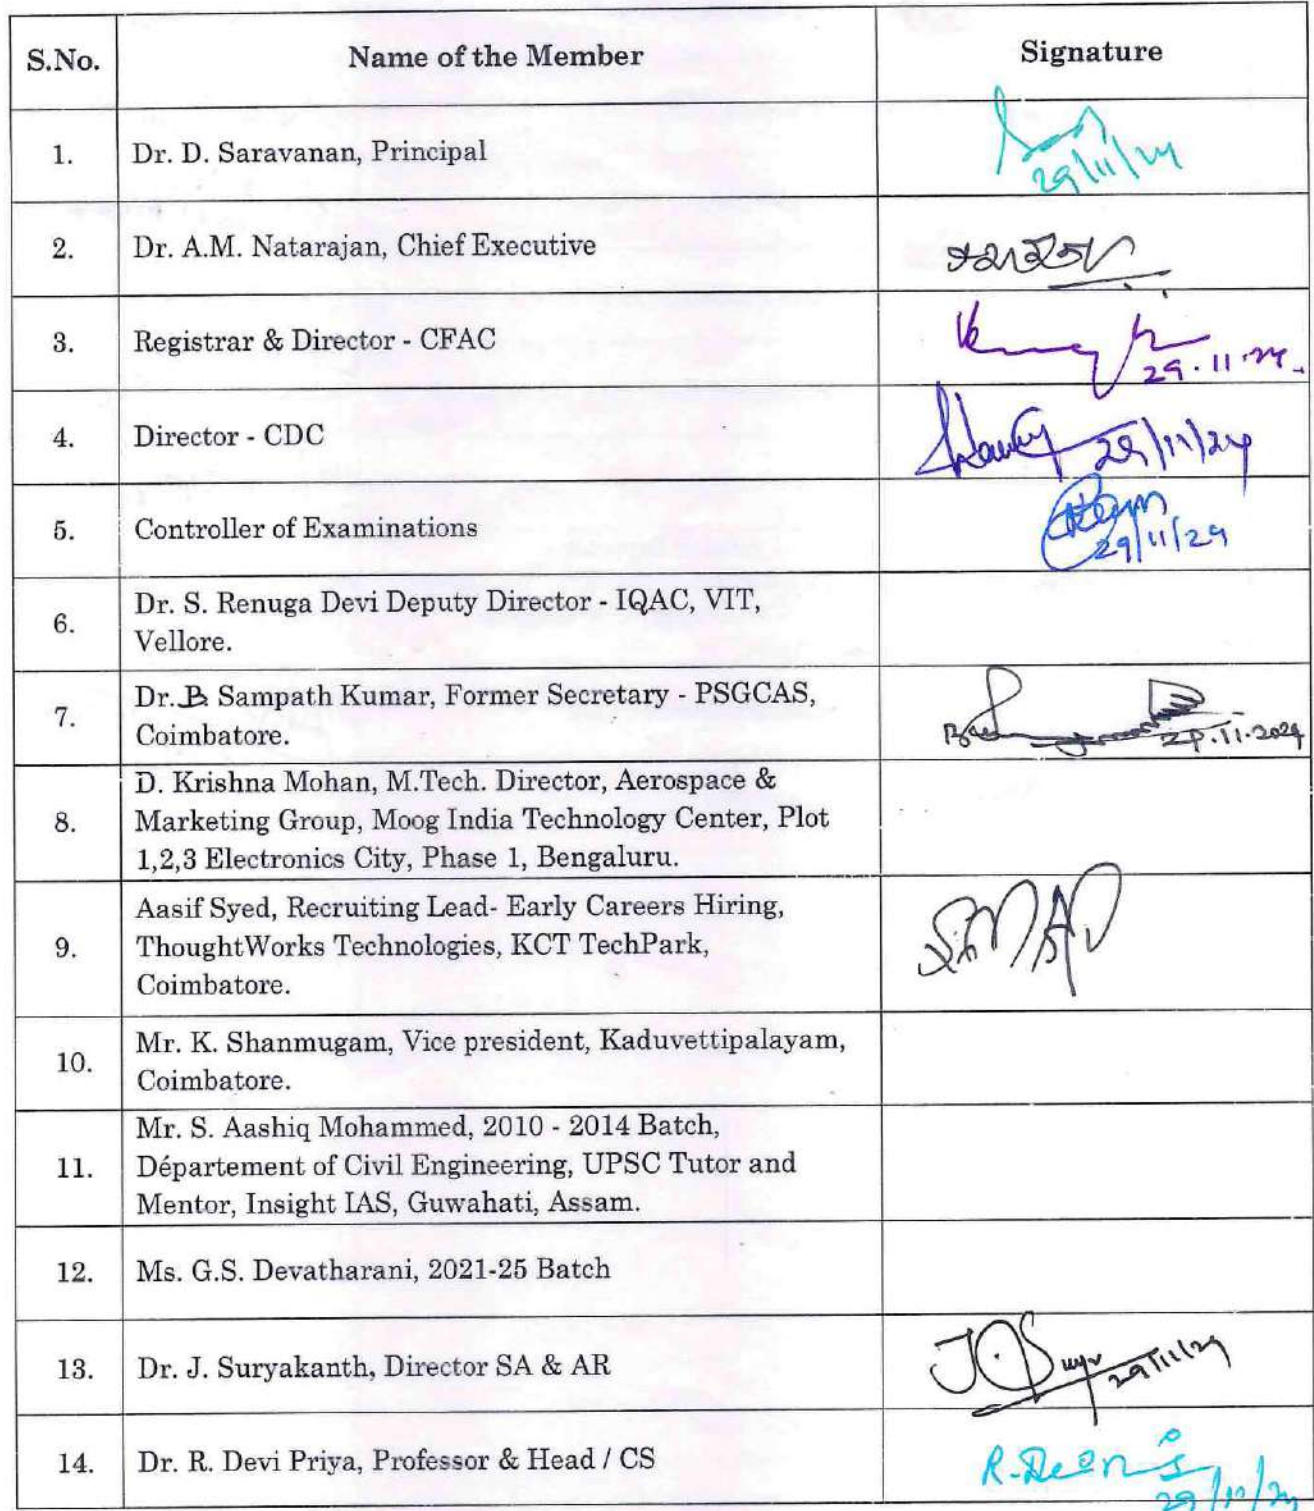 S.No. Name of the Member Signature
1. Dr. D. Saravanan, Principal
29/11/24
2. Dr. A.M. Natarajan, Chief Executive
3. Registrar & Director - CFAC
29.11.24.
4. Director - CDC
29/11/24
5. Controller of Examinations
29/11/24
Dr. S. Renuga Devi Deputy Director - IQAC, VIT,
6.
Vellore.
Dr. B Sampath Kumar, Former Secretary - PSGCAS,
7.
Coimbatore.
.11.2024
D. Krishna Mohan, M.Tech. Director, Aerospace &
8. Marketing Group, Moog India Technology Center, Plot
1,2,3 Electronics City, Phase 1, Bengaluru.
Aasif Syed, Recruiting Lead- Early Careers Hiring,
9. ThoughtWorks Technologies, KCT TechPark,
Coimbatore.
Mr. K. Shanmugam, Vice president, Kaduvettipalayam,
10.
Coimbatore.
Mr. S. Aashiq Mohammed, 2010 - 2014 Batch,
11. Département of Civil Engineering, UPSC Tutor and
Mentor, Insight IAS, Guwahati, Assam.
12. Ms. G.S. Devatharani, 2021-25 Batch
13. Dr. J. Suryakanth, Director SA & AR
29/11/24
14. Dr. R. Devi Priya, Professor & Head / CS